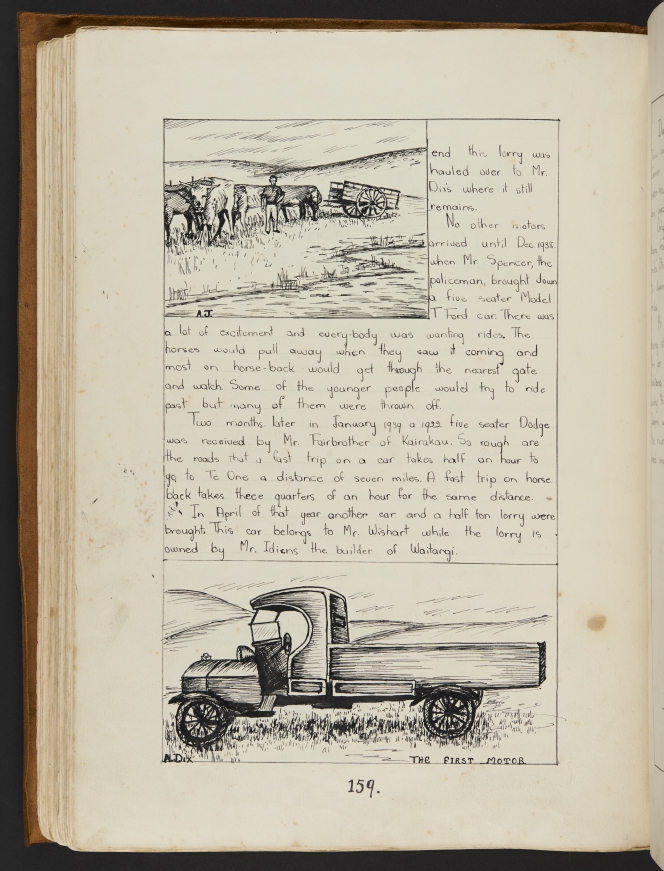 end this lorry was
hauled over to Mr.
Dix's where it still
remains.
No other motors
arrived until Dec. 1938.
when Mr. Spencer, the
policeman, brought down
a five seater Model
T Ford car. There was
A.J.
a lot of excitement and every-body was wanting rides. The
horses would pull away when they saw it coming and
most on horse-back would get through the nearest gate
and watch. Some of the younger people would try to ride
past but many of them were thrown off.
Two months later in January 1939 a 1922 five seater Dodge
was received by Mr. Fairbrother of Kairakau. So rough are
the roads that a fast trip on a car takes half an hour to
go to Te One a distance of seven miles. A fast trip on horse
back takes three quarters of an hour for the same distance.
In April of that year another car and a half ton lorry were
brought. This car belongs to Mr. Wishart while the lorry is
owned by Mr. Idiens the builder of Waitangi.
A. DIX
THE FIRST MOTOR
159.